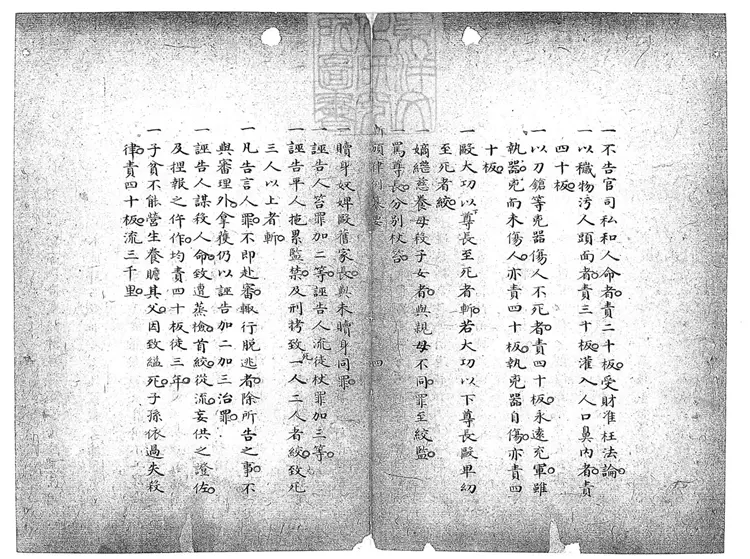 一不告官司私和人命者責二十板受財准枉法論
一以穢物污人頭面者責三十板灌入人口鼻內者責
四十板
一以刀鎗等兇器傷人不死者責四十板永遠充軍雖
執器兇而未傷人亦責四十板執兇器自傷亦責四
十板
一毆大功以下尊長至死者斬若大功以下尊長毆卑幼
至死者絞
一嫡繼慈養母殺子女者與親母不同罪至絞監
一罵尊長分別杖笞
一贖身奴婢毆舊家長與未贖身同罪
一誣告人笞罪加二等誣告人流徒杖罪加三等
一誣告平人拖累監禁及刑拷致死一人二人者絞致死
三人以上者斬
一凡告言人罪不即赴審輒行脫逃者除所告之事不
與審理外拿獲仍以誣告加二加三治罪
一誣告人謀殺人命致遭蒸檢首絞從流妄供之證佐
及捏報之仵作均責四十板徒三年
一子貧不能營生養贍其父因致縊死子孫依過失殺
律責四十板流三千里